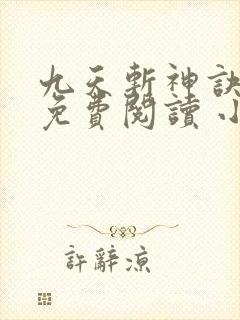 九天斬神訣
免費閱讀 小
許辭涼